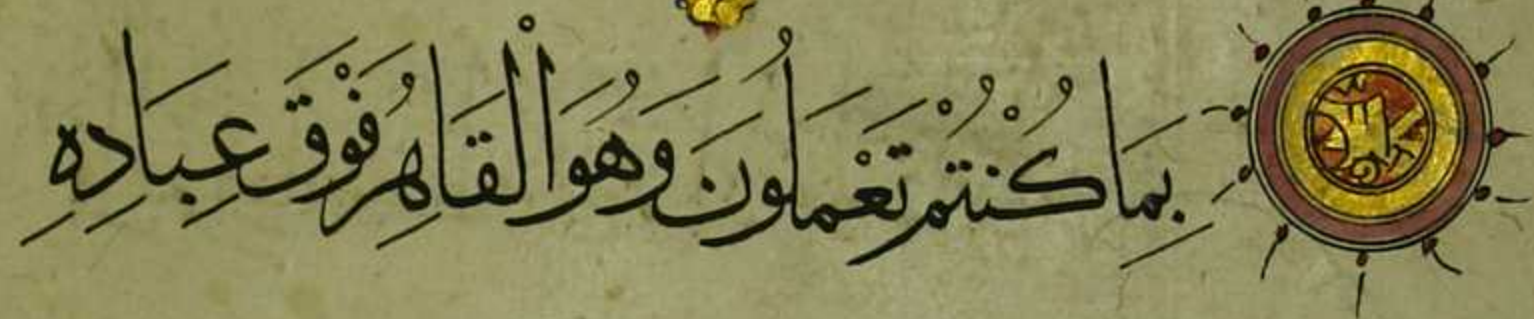 بِمَا كُنْتُمْ تَعْمَلُونَ وَهُوَ الْقَاهِرُ فَوْقَ عِبَادِهِ